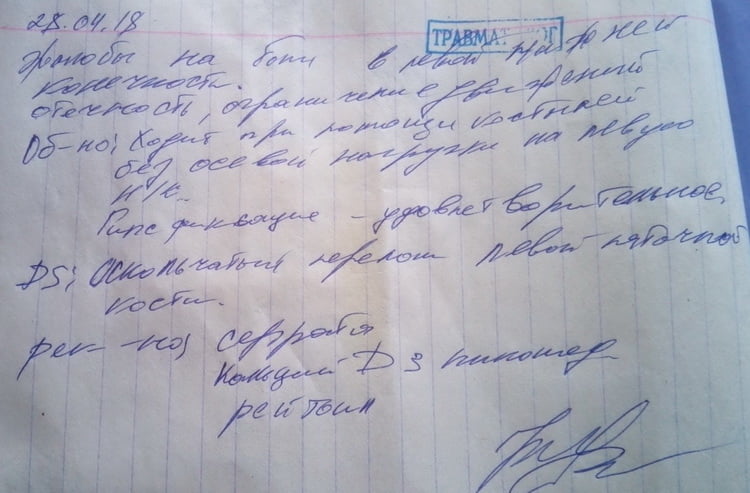 28.04.18
ТРАВМАТОЛОГ
Жалобы на боли в левой нижней
конечности.
отечность, ограничение движений
Об-но: Ходит при помощи костылей
без осевой нагрузки на левую
н/к.
Гипс фиксация - удовлетворительное.
DS: Оскольчатый перелом левой пяточной
кости.
рек-но:
Кальций D3 никомед